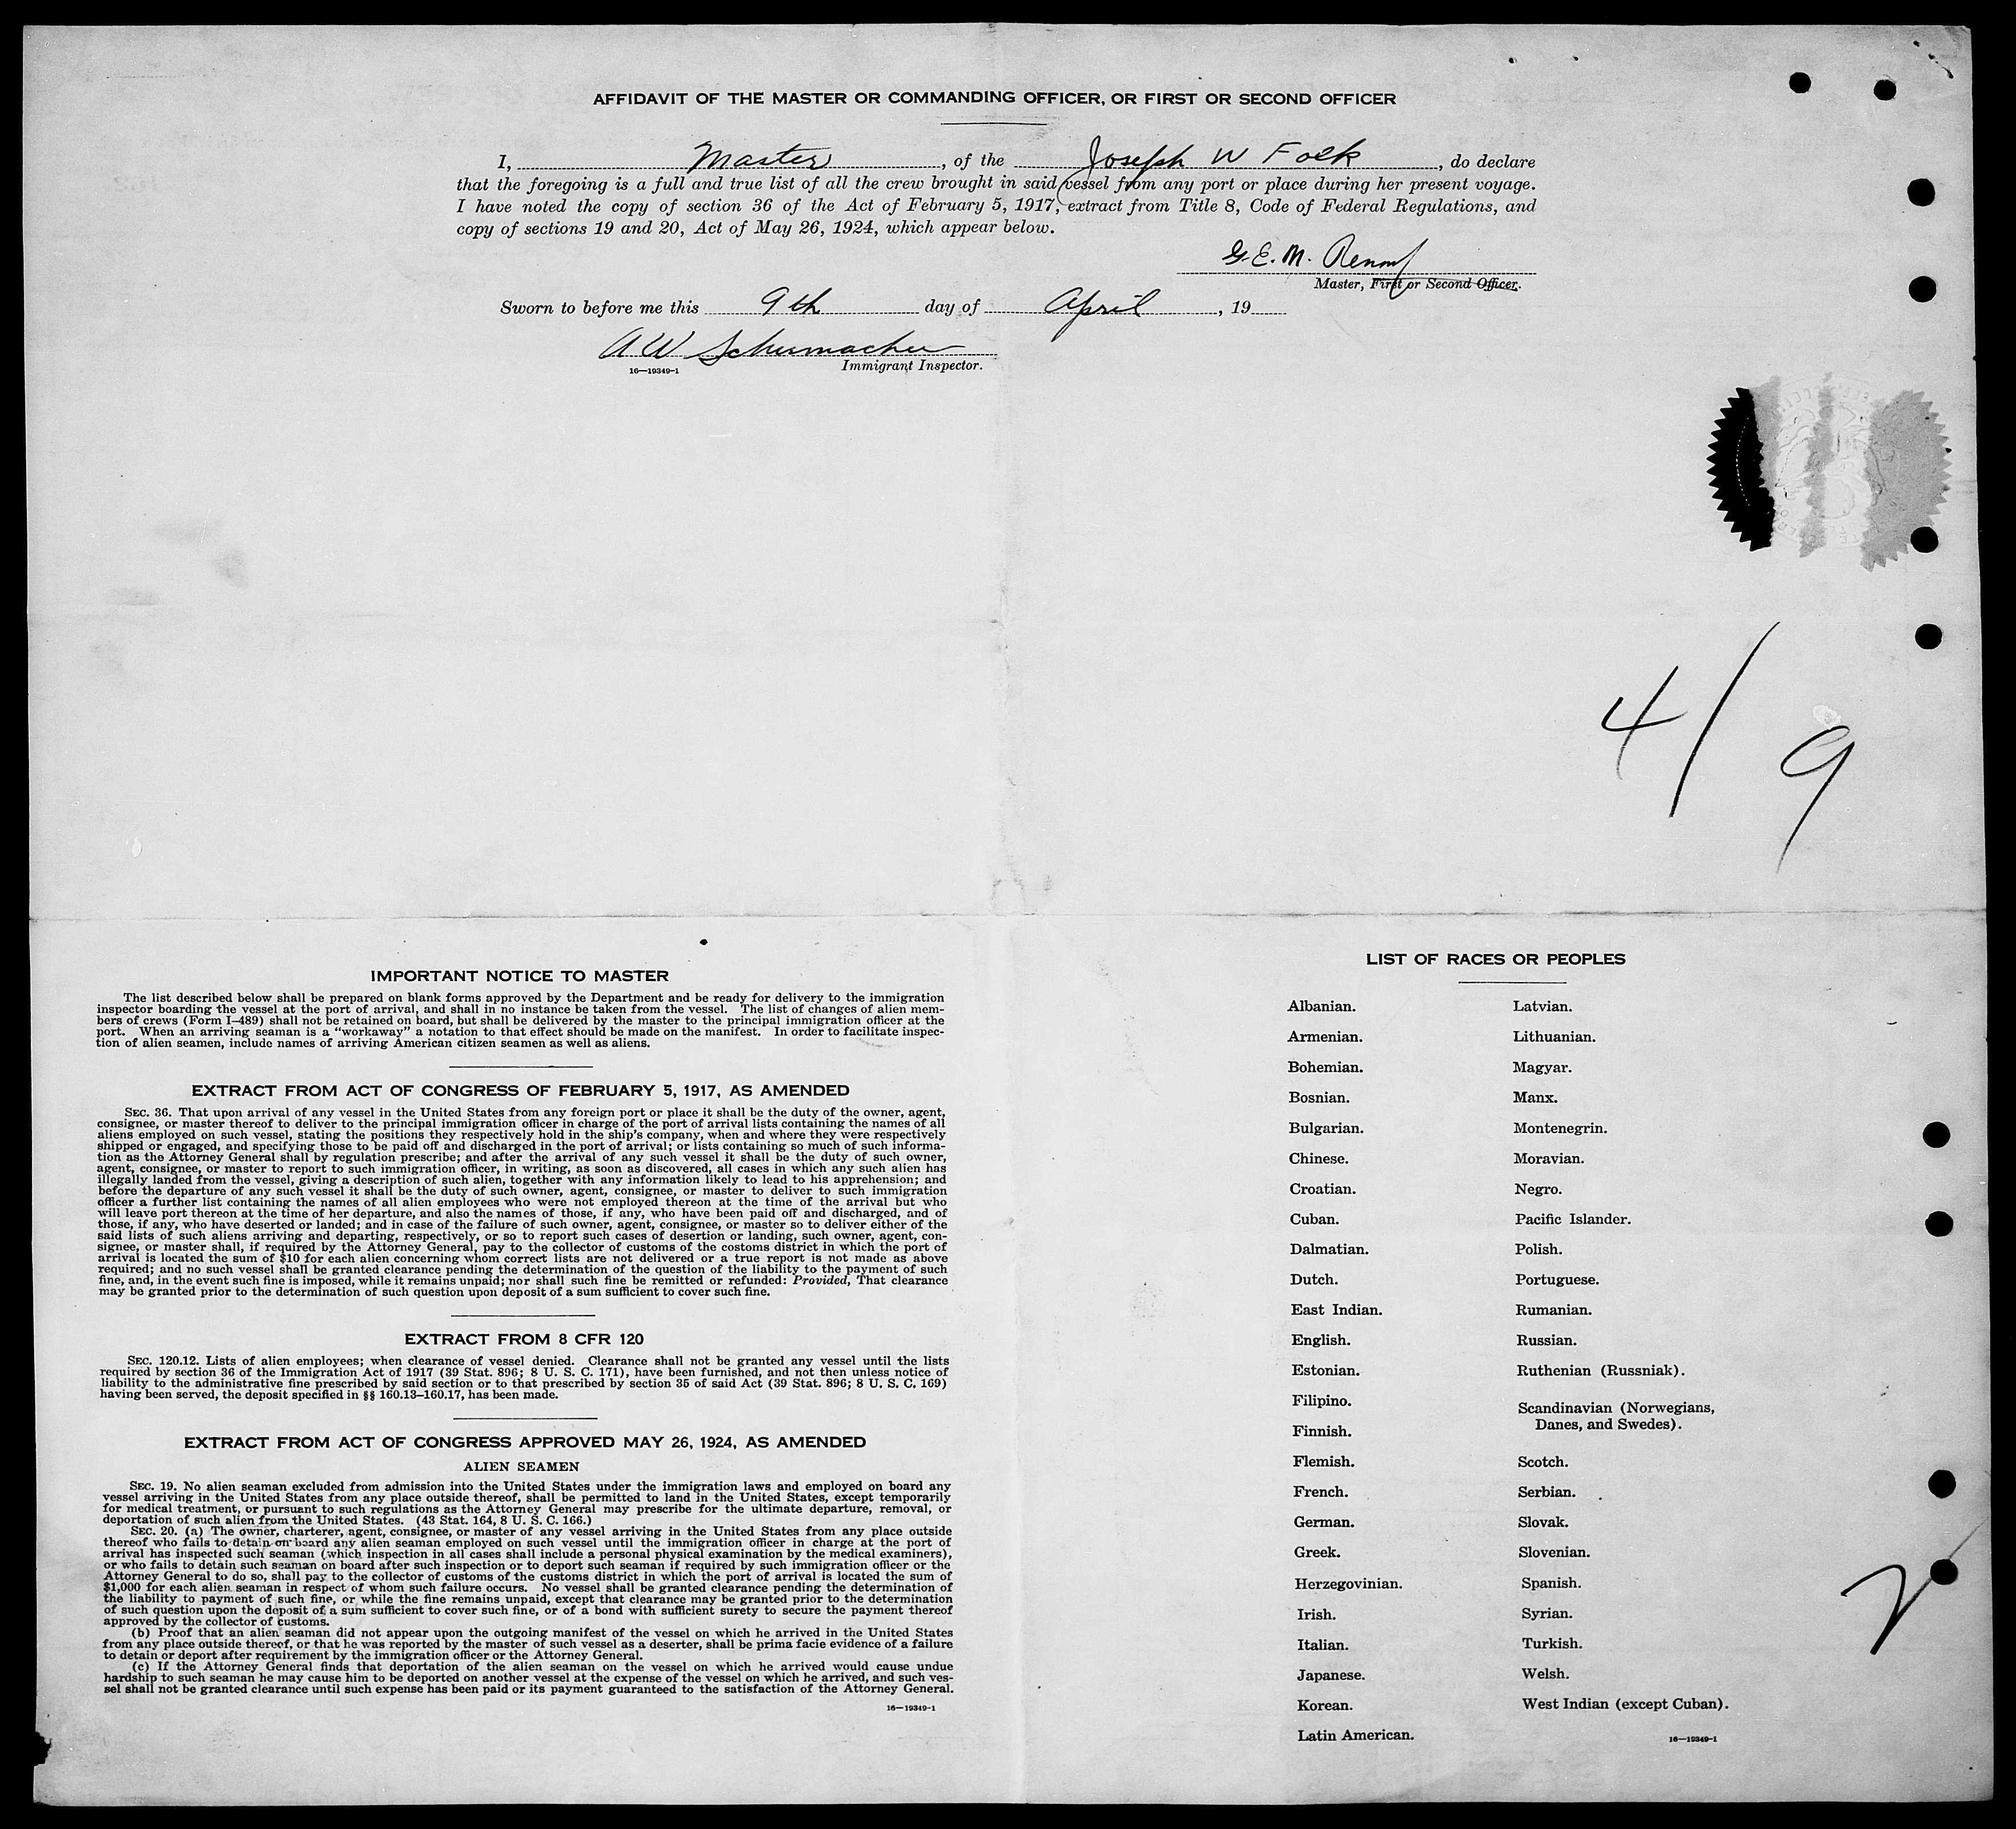 AFFIDAVIT OF THE MASTER OR COMMANDING OFFICER, OR FIRST OR SECOND OFFICER
I, Master, of the Joseph W Folk, do declare
that the foregoing is a full and true list of all the crew brought in said vessel from any port or place during her present voyage.
I have noted the copy of section 36 of the Act of February 5, 1917, extract from Title 8, Code of Federal Regulations, and
copy of sections 19 and 20, Act of May 26, 1924, which appear below.
G. E. M. Renouf
Master, First or Second Officer.
Sworn to before me this 9th day of April, 19
A W Schumacher
16—19349-1 Immigrant Inspector.
4/9
IMPORTANT NOTICE TO MASTER
The list described below shall be prepared on blank forms approved by the Department and be ready for delivery to the immigration
inspector boarding the vessel at the port of arrival, and shall in no instance be taken from the vessel. The list of changes of alien mem-
bers of crews (Form I-489) shall not be retained on board, but shall be delivered by the master to the principal immigration officer at the
port. When an arriving seaman is a "workaway" a notation to that effect should be made on the manifest. In order to facilitate inspec-
tion of alien seamen, include names of arriving American citizen seamen as well as aliens.
EXTRACT FROM ACT OF CONGRESS OF FEBRUARY 5, 1917, AS AMENDED
SEC. 36. That upon arrival of any vessel in the United States from any foreign port or place it shall be the duty of the owner, agent,
consignee, or master thereof to deliver to the principal immigration officer in charge of the port of arrival lists containing the names of all
aliens employed on such vessel, stating the positions they respectively hold in the ship's company, when and where they were respectively
shipped or engaged, and specifying those to be paid off and discharged in the port of arrival; or lists containing so much of such informa-
tion as the Attorney General shall by regulation prescribe; and after the arrival of any such vessel it shall be the duty of such owner,
agent, consignee, or master to report to such immigration officer, in writing, as soon as discovered, all cases in which any such alien has
illegally landed from the vessel, giving a description of such alien, together with any information likely to lead to his apprehension; and
before the departure of any such vessel it shall be the duty of such owner, agent, consignee, or master to deliver to such immigration
officer a further list containing the names of all alien employees who were not employed thereon at the time of the arrival but who
will leave port thereon at the time of her departure, and also the names of those, if any, who have been paid off and discharged, and of
those, if any, who have deserted or landed; and in case of the failure of such owner, agent, consignee, or master so to deliver either of the
said lists of such aliens arriving and departing, respectively, or so to report such cases of desertion or landing, such owner, agent, con-
signee, or master shall, if required by the Attorney General, pay to the collector of customs of the costoms district in which the port of
arrival is located the sum of $10 for each alien concerning whom correct lists are not delivered or a true report is not made as above
required; and no such vessel shall be granted clearance pending the determination of the question of the liability to the payment of such
fine, and, in the event such fine is imposed, while it remains unpaid; nor shall such fine be remitted or refunded: Provided, That clearance
may be granted prior to the determination of such question upon deposit of a sum sufficient to cover such fine.
EXTRACT FROM 8 CFR 120
SEC. 120.12. Lists of alien employees; when clearance of vessel denied. Clearance shall not be granted any vessel until the lists
required by section 36 of the Immigration Act of 1917 (39 Stat. 896; 8 U. S. C. 171), have been furnished, and not then unless notice of
liability to the administrative fine prescribed by said section or to that prescribed by section 35 of said Act (39 Stat. 896; 8 U. S. C. 169)
having been served, the deposit specified in §§ 160.13–160.17, has been made.
EXTRACT FROM ACT OF CONGRESS APPROVED MAY 26, 1924, AS AMENDED
ALIEN SEAMEN
SEC. 19. No alien seaman excluded from admission into the United States under the immigration laws and employed on board any
vessel arriving in the United States from any place outside thereof, shall be permitted to land in the United States, except temporarily
for medical treatment, or pursuant to such regulations as the Attorney General may prescribe for the ultimate departure, removal, or
deportation of such alien from the United States. (43 Stat. 164, 8 U. S. C. 166.)
SEC. 20. (a) The owner, charterer, agent, consignee, or master of any vessel arriving in the United States from any place outside
thereof who fails to detain on board any alien seaman employed on such vessel until the immigration officer in charge at the port of
arrival has inspected such seaman (which inspection in all cases shall include a personal physical examination by the medical examiners),
or who fails to detain such seaman on board after such inspection or to deport such seaman if required by such immigration officer or the
Attorney General to do so, shall pay to the collector of customs of the customs district in which the port of arrival is located the sum of
$1,000 for each alien seaman in respect of whom such failure occurs. No vessel shall be granted clearance pending the determination of
the liability to payment of such fine, or while the fine remains unpaid, except that clearance may be granted prior to the determination
of such question upon the deposit of a sum sufficient to cover such fine, or of a bond with sufficient surety to secure the payment thereof
approved by the collector of customs.
(b) Proof that an alien seaman did not appear upon the outgoing manifest of the vessel on which he arrived in the United States
from any place outside thereof, or that he was reported by the master of such vessel as a deserter, shall be prima facie evidence of a failure
to detain or deport after requirement by the immigration officer or the Attorney General.
(c) If the Attorney General finds that deportation of the alien seaman on the vessel on which he arrived would cause undue
hardship to such seaman he may cause him to be deported on another vessel at the expense of the vessel on which he arrived, and such ves-
sel shall not be granted clearance until such expense has been paid or its payment guaranteed to the satisfaction of the Attorney General.
16—19349-1
LIST OF RACES OR PEOPLES
Albanian.
Armenian.
Bohemian.
Bosnian.
Bulgarian.
Chinese.
Croatian.
Cuban.
Dalmatian.
Dutch.
East Indian.
English.
Estonian.
Filipino.
Finnish.
Flemish.
French.
German.
Greek.
Herzegovinian.
Irish.
Italian.
Japanese.
Korean.
Latin American.
Latvian.
Lithuanian.
Magyar.
Manx.
Montenegrin.
Moravian.
Negro.
Pacific Islander.
Polish.
Portuguese.
Rumanian.
Russian.
Ruthenian (Russniak).
Scandinavian (Norwegians,
Danes, and Swedes).
Scotch.
Serbian.
Slovak.
Slovenian.
Spanish.
Syrian.
Turkish.
Welsh.
West Indian (except Cuban).
16—19349-1